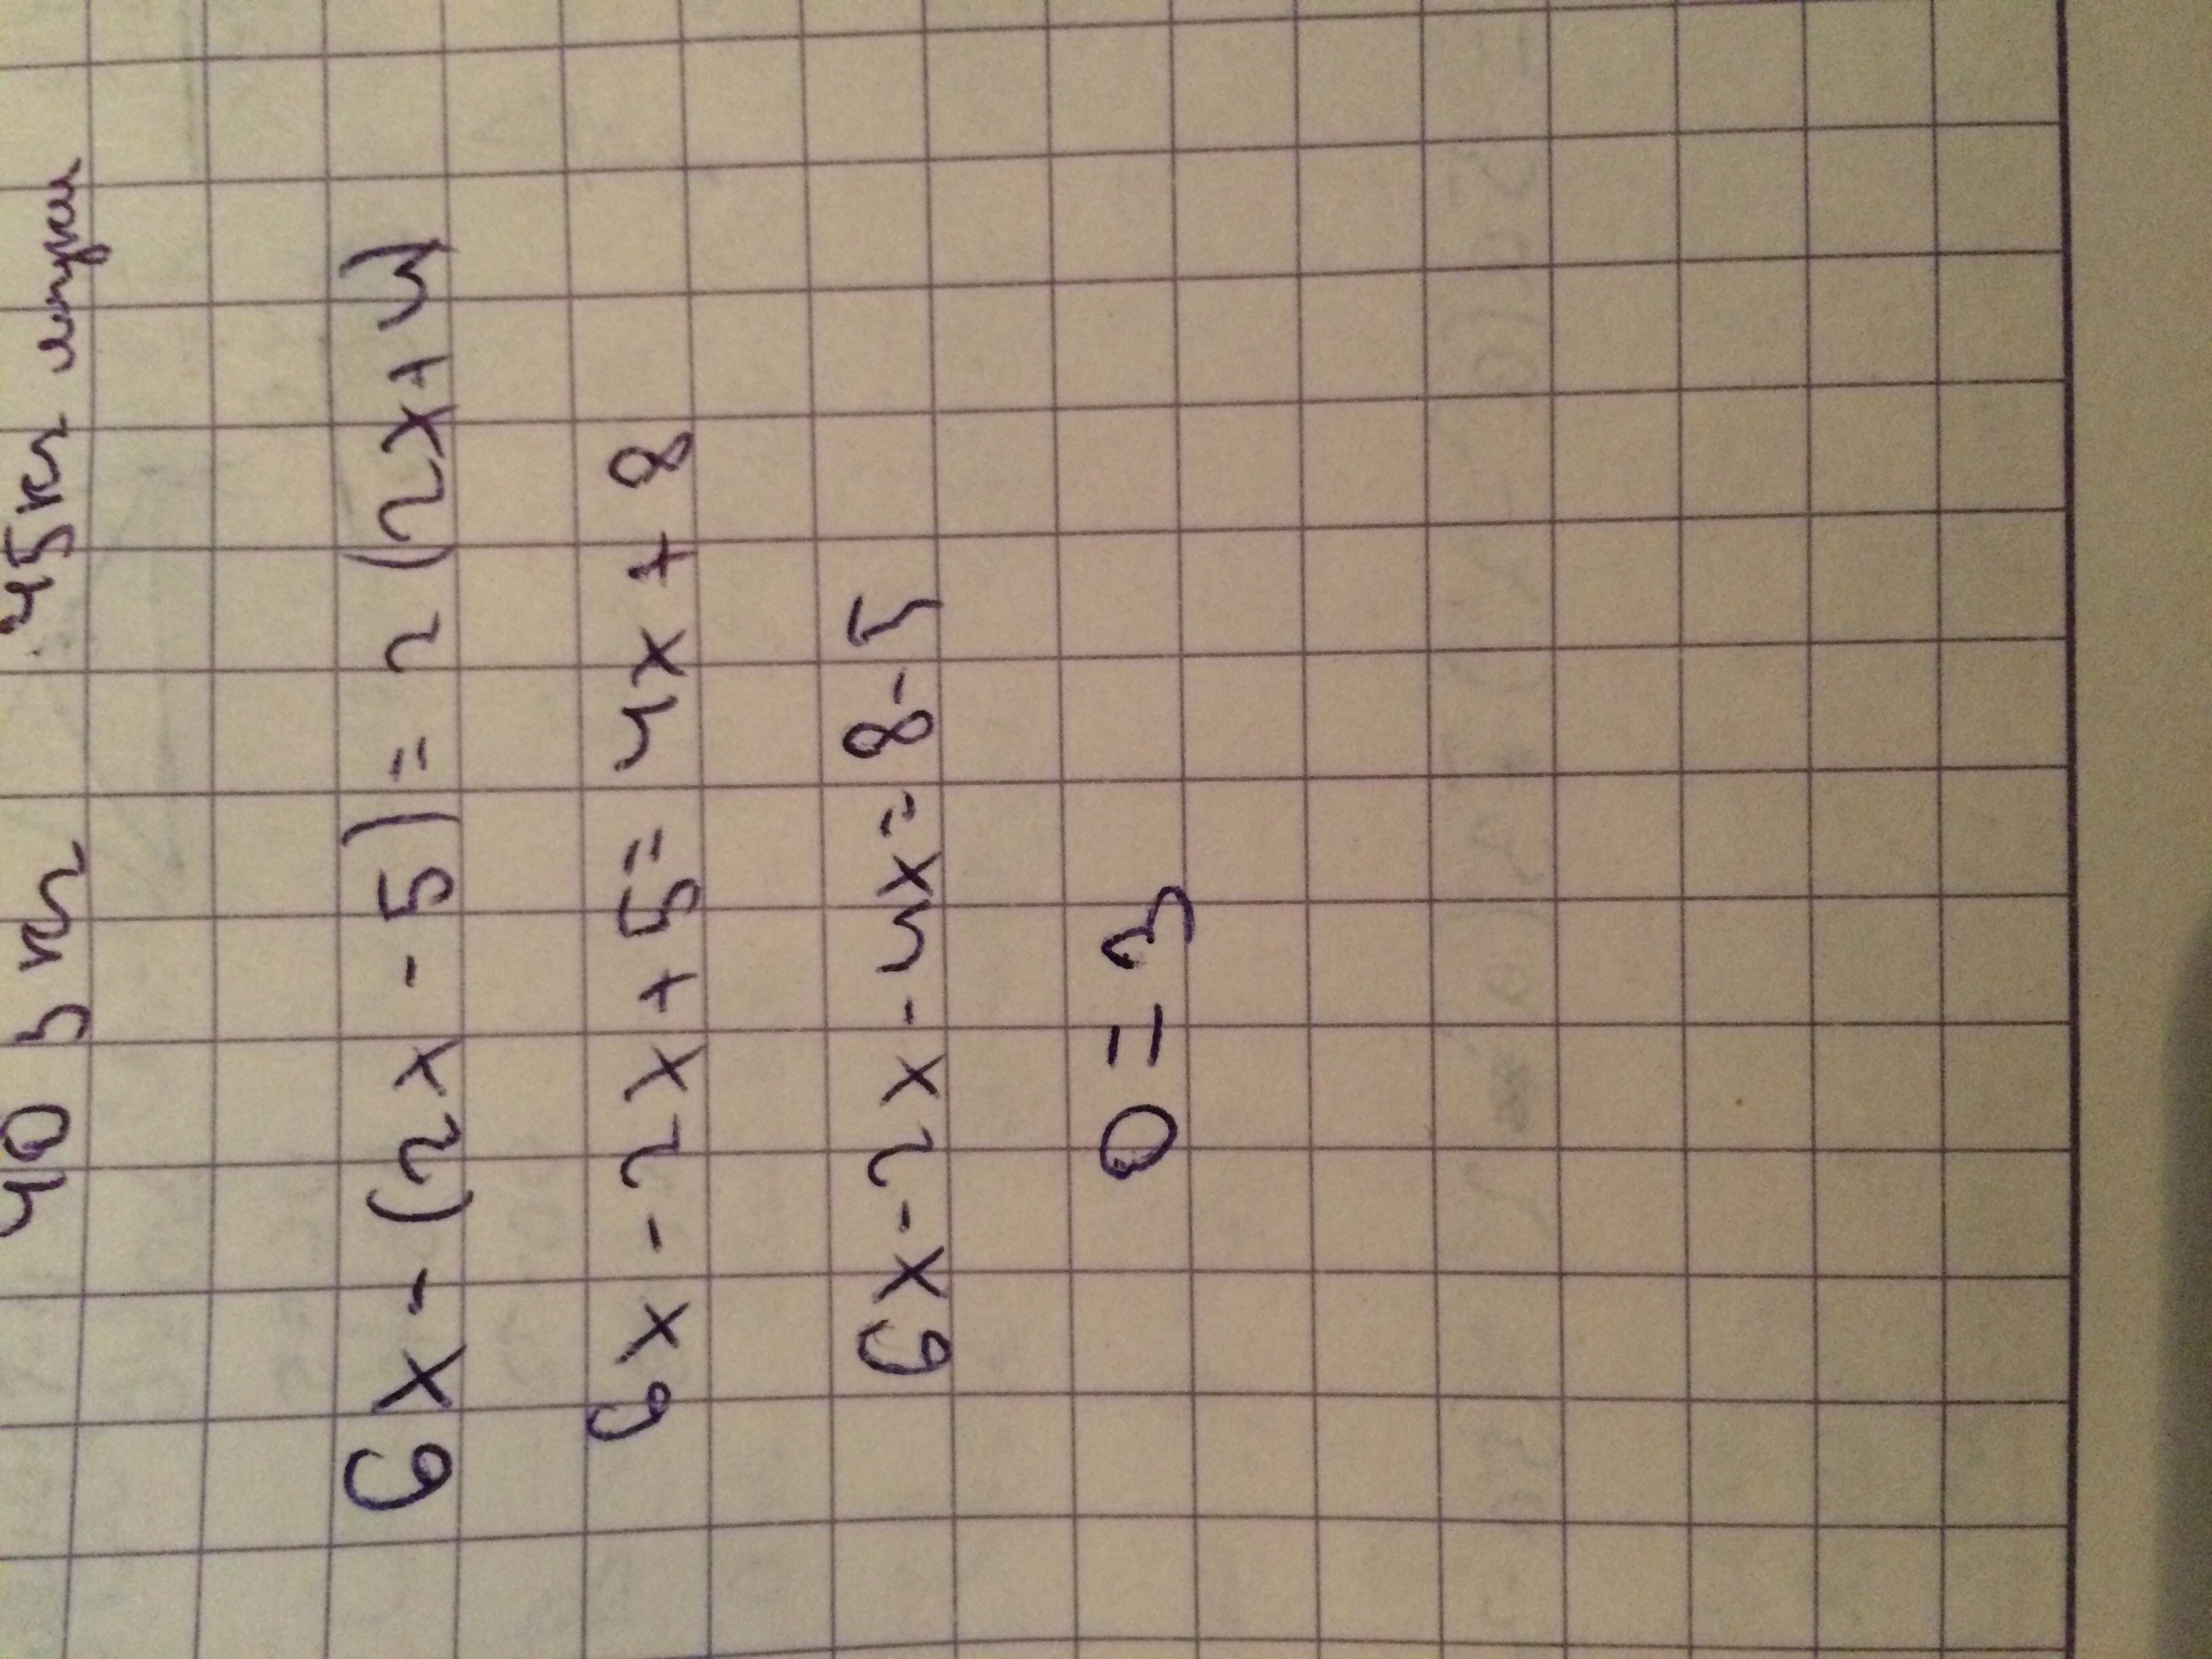 40 5 кг 45 кг муки
6x - (2x - 5) = 2 (2x + 4)
6x - 2x + 5 = 4x + 8
6x - 2x - 4x = 8 - 5
0 = 3